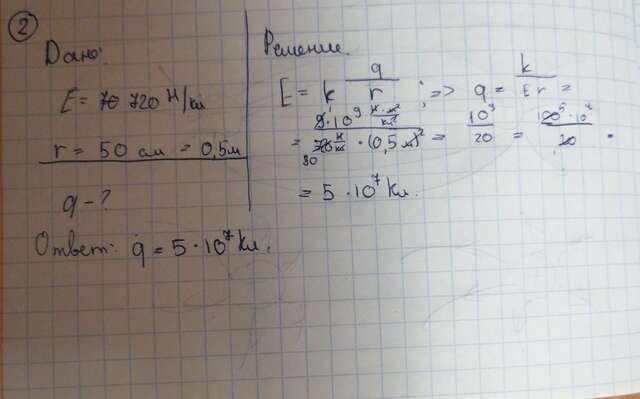 2
Дано:
E = 720 Н/Кл
r = 50 см = 0,5м
q - ?
Решение.
E = k q/r ; => q = k/Er =
= 9·10⁹ Н·м²/Кл² / 720 Н/Кл · (0,5 м)² = 10⁹/20 = 10⁷/20 =
80
= 5 · 10⁷ Кл.
Ответ: q = 5 · 10⁷ Кл.